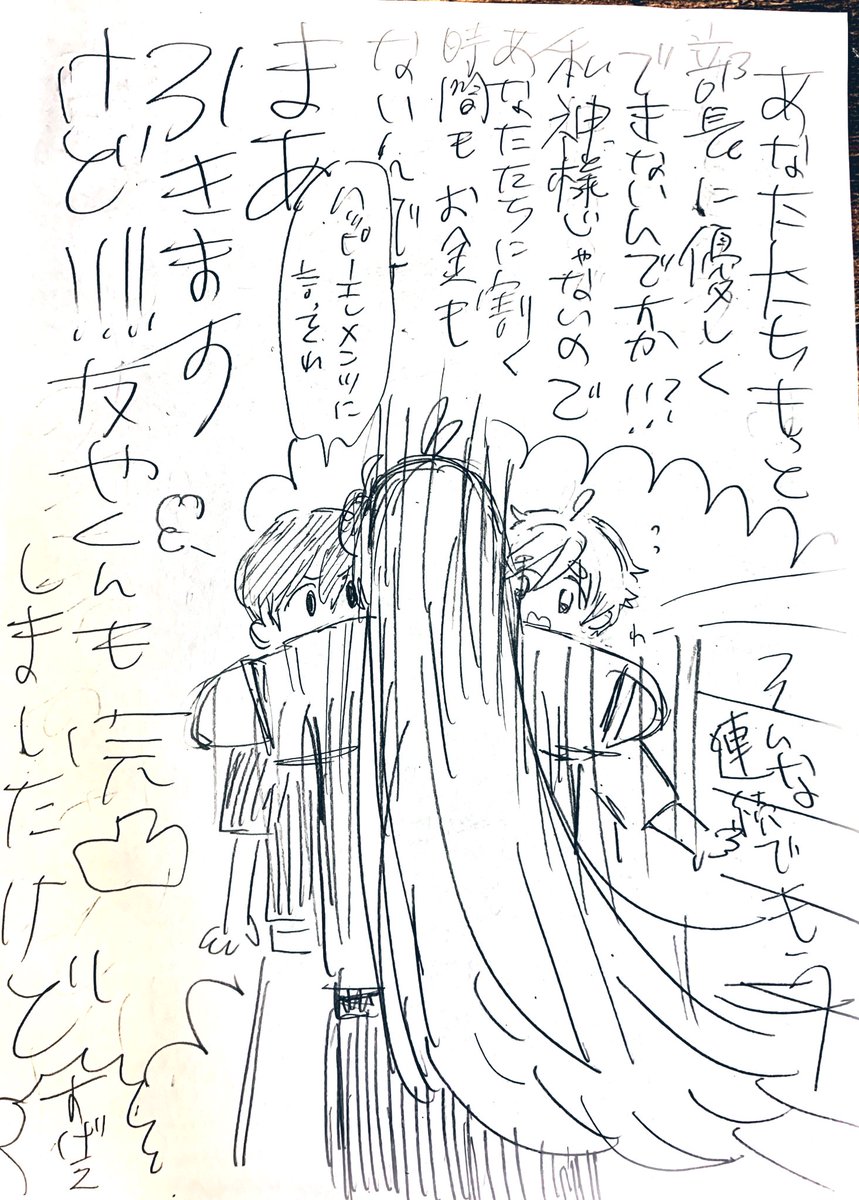 あなたたちもっと
部長に優しく
できないんですか!!?
私神様じゃないので
あなたたちに割く
時間も お金も
ないんで
ハッピーエレメンツに
言ってそれ
まあ
引きます
けど!!!!
友やくんも
しましたけど
そんなで